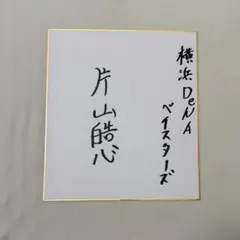 横浜DeNA
ベイスターズ
片山皓心